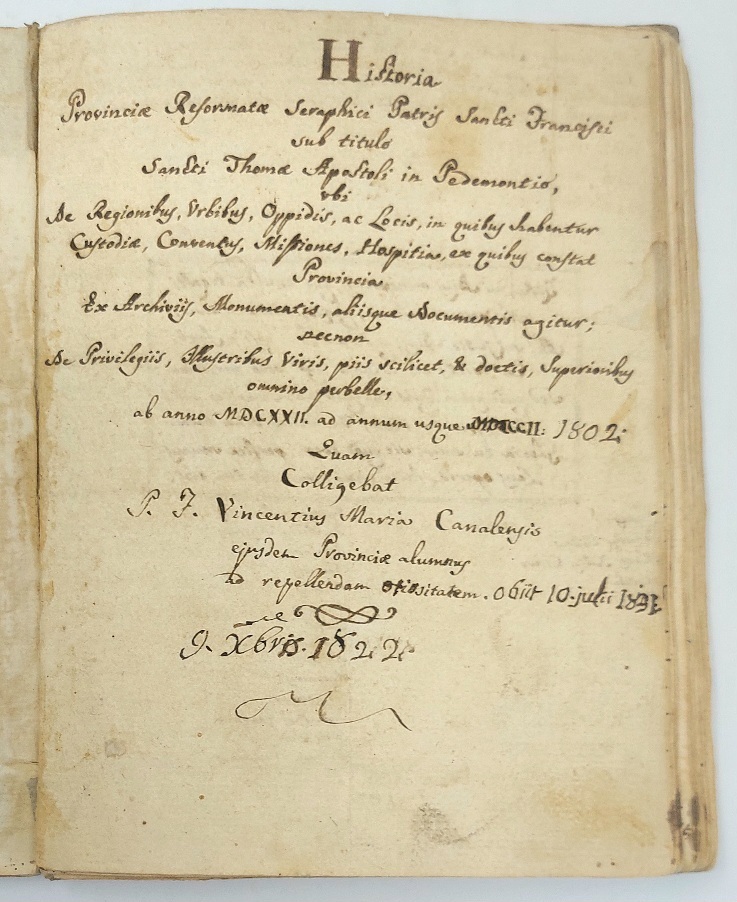 Historia
Provinciæ Reformatæ Seraphici Patris Sancti Francisci
sub titulo
Sancti Thomæ Apostoli in Pedemontio,
vbi
De Regionibus, Vrbibus, Oppidis, ac Locis, in quibus habentur
Custodiæ, Conventus, Missiones, Hospitia, ex quibus constat
Provincia
Ex Archiviis, Monumentis, aliisque Documentis agitur;
necnon
De Privilegiis, Illustribus Viris, piis scilicet, & doctis, Superioribus
omnino perbelle,
ab anno MDCXXII. ad annum usque MDCCCII: 1802:
Quam
Colligebat
P. F. Vincentius Maria Canalensis
ejusdem Provinciæ alumnus
ad repellendam otiositatem. obiit 10. julii
9. Xbris. 1822: